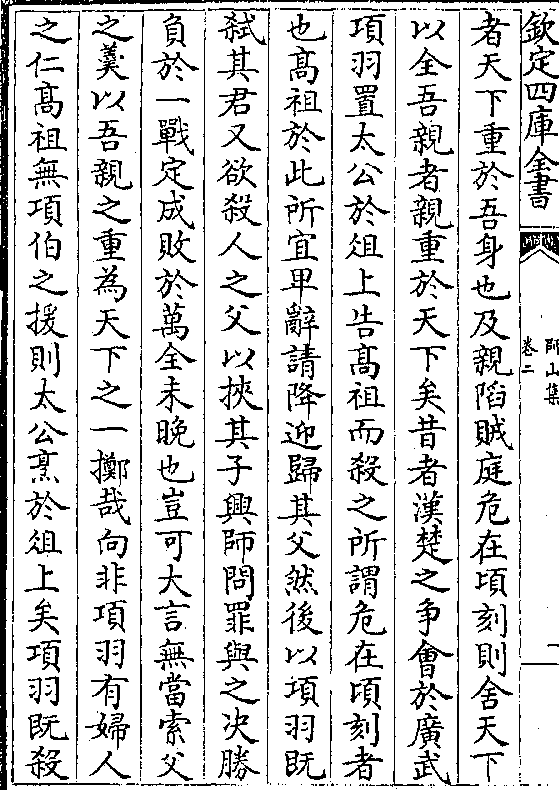 欽定四庫全書
師山集
卷二
一
者天下重於吾身也及親陷賊庭危在頃刻則舍天下
以全吾親者親重於天下矣昔者漢楚之争會於廣武
項羽置太公於俎上告髙祖而殺之所謂危在頃刻者
也髙祖於此所宜卑辭請降迎歸其父然後以項羽既
弑其君又欲殺人之父以挾其子興師問罪與之决勝
負於一戰定成敗於萬全未晚也豈可大言無當索父
之羹以吾親之重為天下之一擲哉向非項羽有婦人
之仁髙祖無項伯之援則太公烹於俎上矣項羽既殺